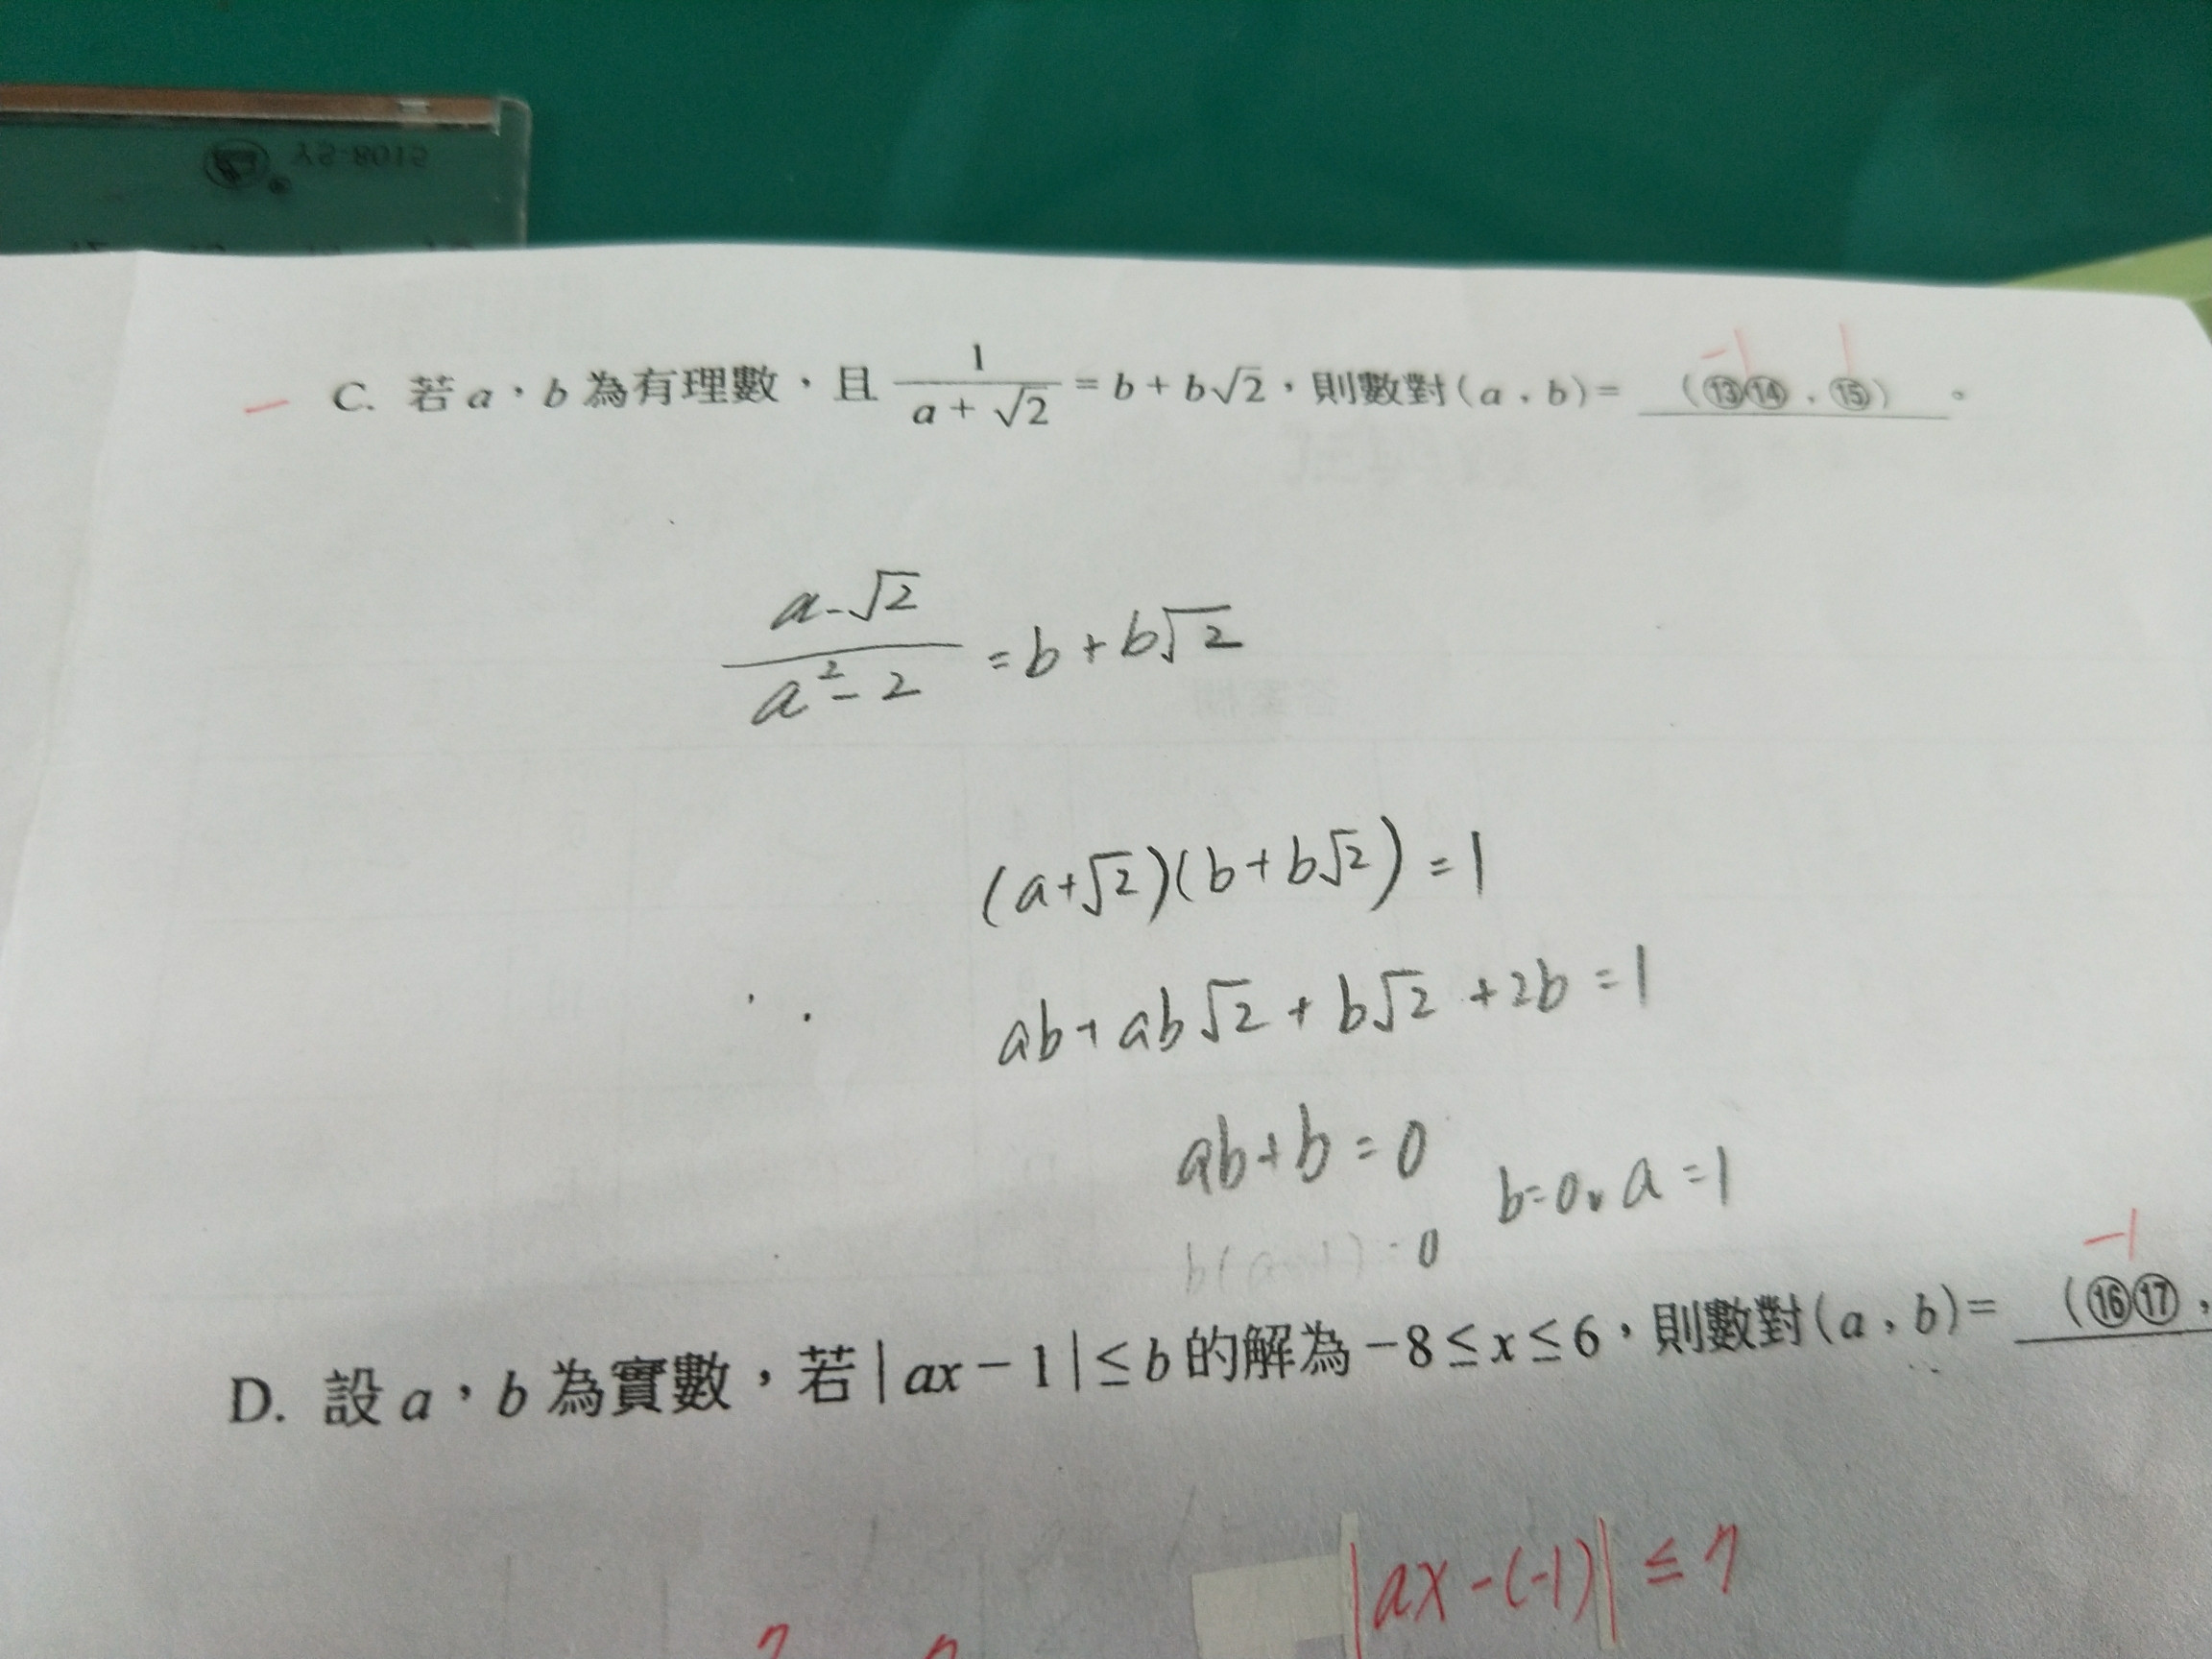 YS-8015
-1 1
C. 若 a，b 為有理數，且 1/(a + √2) = b + b√2，則數對(a，b) = (⑬⑭，⑮)。
(a-√2)/(a²-2) = b + b√2
(a+√2)(b+b√2) = 1
ab + ab√2 + b√2 + 2b = 1
ab + b = 0 b=0, a=1
-1
D. 設 a，b 為實數，若 | ax − 1 | ≤ b 的解為 −8 ≤ x ≤ 6，則數對(a，b) = (⑯⑰，
|ax-(-1)| ≤ 7